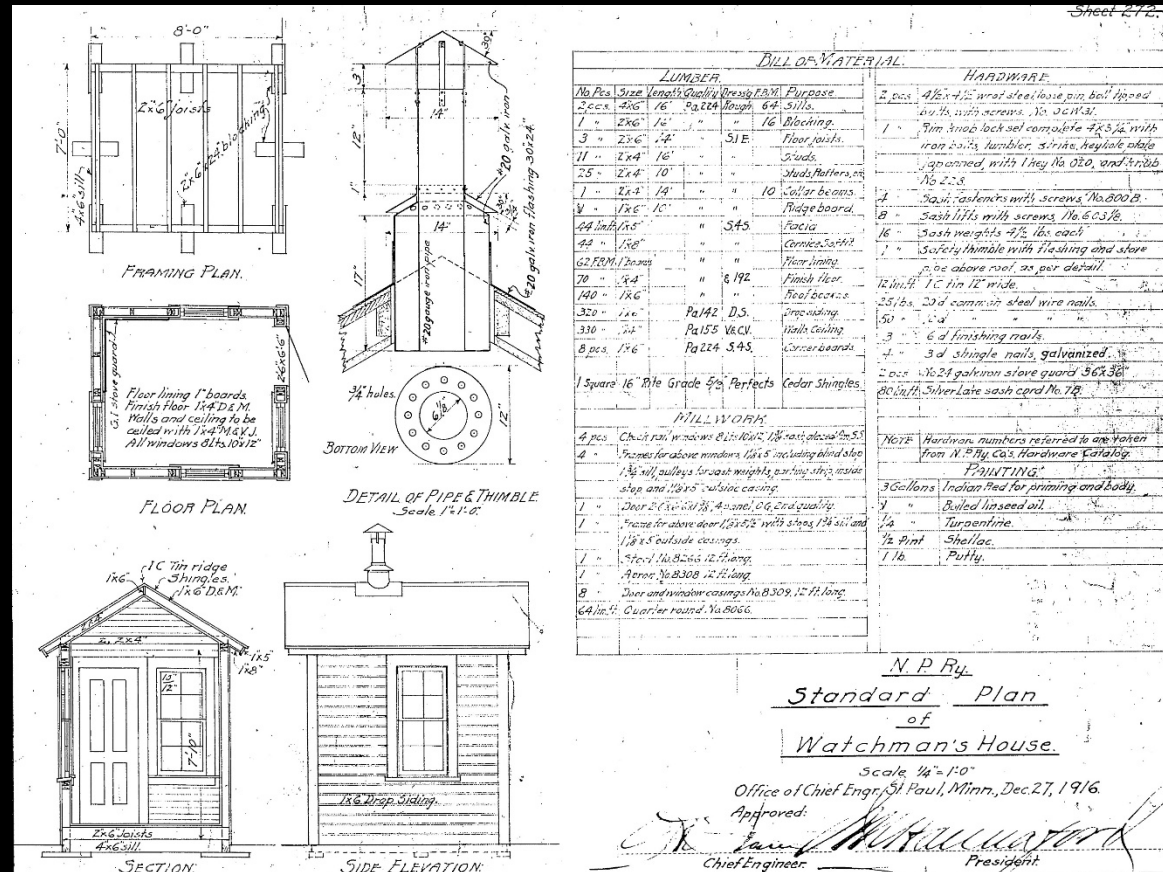 Sheet 272.
8'-0"
7'-0"
2"x6" Joists
2"x6"x24" blocking
4"x6" sill
FRAMING PLAN.
30°
3"
14"
12"
#20 galv. iron
#20 galv. iron flashing 30"x24"
1"
14"
17"
#20 gauge iron pipe
3/4" holes.
6 1/8"
12"
BOTTOM VIEW
DETAIL OF PIPE & THIMBLE
Scale 1"=1'-0".
G.I. stove guard
2'-6"x6'-6"
Floor lining 1" boards.
Finish floor 1x4" D.& M.
Walls and ceiling to be
ceiled with 1"x4" M.& V.J.
All windows 8 Lts. 10"x12"
FLOOR PLAN.
1 C Tin ridge
1"x6"
Shingles.
1"x6" D.& M.
2"x4"
2, 2"x4"
1"x5"
1"x8"
10"
12"
7'-10"
2"x6" Joists
4"x6" sill.
SECTION.
1"x6" Drop Siding.
SIDE ELEVATION.
BILL OF MATERIAL.
LUMBER.
No. Pcs. Size Length Quality Dress'g F.B.M. Purpose
2 pcs. 4"x6" 16' Pa 224 Rough 64 Sills.
1 " 2"x6" 16' " " 16 Blocking.
3 " 2"x6" 14' " S.1.E. Floor joists.
11 " 2"x4" 16' " Studs.
25 " 2"x4" 10' " Studs, Rafters,
1 " 2"x4" 14' " " 10 Collar beams.
1"x6" 10' " " Ridge board.
44 lin. ft. 1"x5" " S.4.S. Facia
44 " 1"x8" " " Cornice Soffit.
62 F.B.M. 1" boards " " Floor lining.
70 " 1"x4" " & 192 Finish floor.
140 " 1"x6" " " Roof boards.
320 " 1"x6" Pa 142 D.S. Drop siding.
330 " 1"x4" Pa 155 V.& C.V. Walls, Ceiling.
8 pcs. 1"x6" Pa 224 S.4.S. Corner boards.
1 Square 16" Rite Grade 5/2 Perfects Cedar Shingles
MILLWORK.
4 pcs Check rail windows 8 Lts 10x12, 1 3/8 sash, glazed S.S.
4 " Frames for above windows, 1 1/8 x 5" including blind stop
1 3/4 sill, pulleys for sash weights, parting strip, inside
stop, and 1 1/8 x 5" outside casing.
1 " Door 2'-6"x6'-6"x1 3/8", 4 panel, O.G. 2nd quality.
1 " Frame for above door 1 1/8 x 5 1/2" with stops, 1 3/4 sill and
1 1/8 x 5 outside casings.
1 " Stool No. 8266 12 ft. long.
1 " Apron No. 8308 12 ft. long.
8 " Door and window casings No. 8309, 12 ft. long.
64 lin. ft. Quarter round. No. 8066.
HARDWARE.
2 pcs. 4 1/2 x 4 1/2" wrot steel loose pin ball tipped
butts, with screws. No.
1 " Rim knob lock set complete 4"x3 1/4" with
iron bolts, tumbler, strike, keyhole plate
japanned, with 1 key No. 020, and knob
No 223.
4 " Sash fasteners with screws, No. 800 B.
8 " Sash lifts with screws, No. 603 1/2.
16 " Sash weights 4 1/2 lbs. each
1 " Safety thimble with flashing and stove
pipe above roof, as per detail.
12 lin. ft. 1 C tin 12" wide.
25 lbs. 20 d common steel wire nails.
50 "
3 " 6 d finishing nails.
4 " 3 d shingle nails, galvanized.
2 pcs No 24 galv. iron stove guard 36"x36"
80 lin. ft. Silver Lake sash cord No. 7 B.
NOTE Hardware numbers referred to are taken
from N.P. Ry. Co's. Hardware Catalog.
PAINTING.
3 Gallons Indian Red for priming and body.
1 " Boiled linseed oil.
1/4 " Turpentine.
1/2 Pint Shellac.
1 lb. Putty.
N. P. Ry.
Standard Plan
of
Watchman's House.
Scale 1/4"=1'-0"
Office of Chief Engr., St. Paul, Minn., Dec. 27, 1916.
Approved:
Chief Engineer.
President.